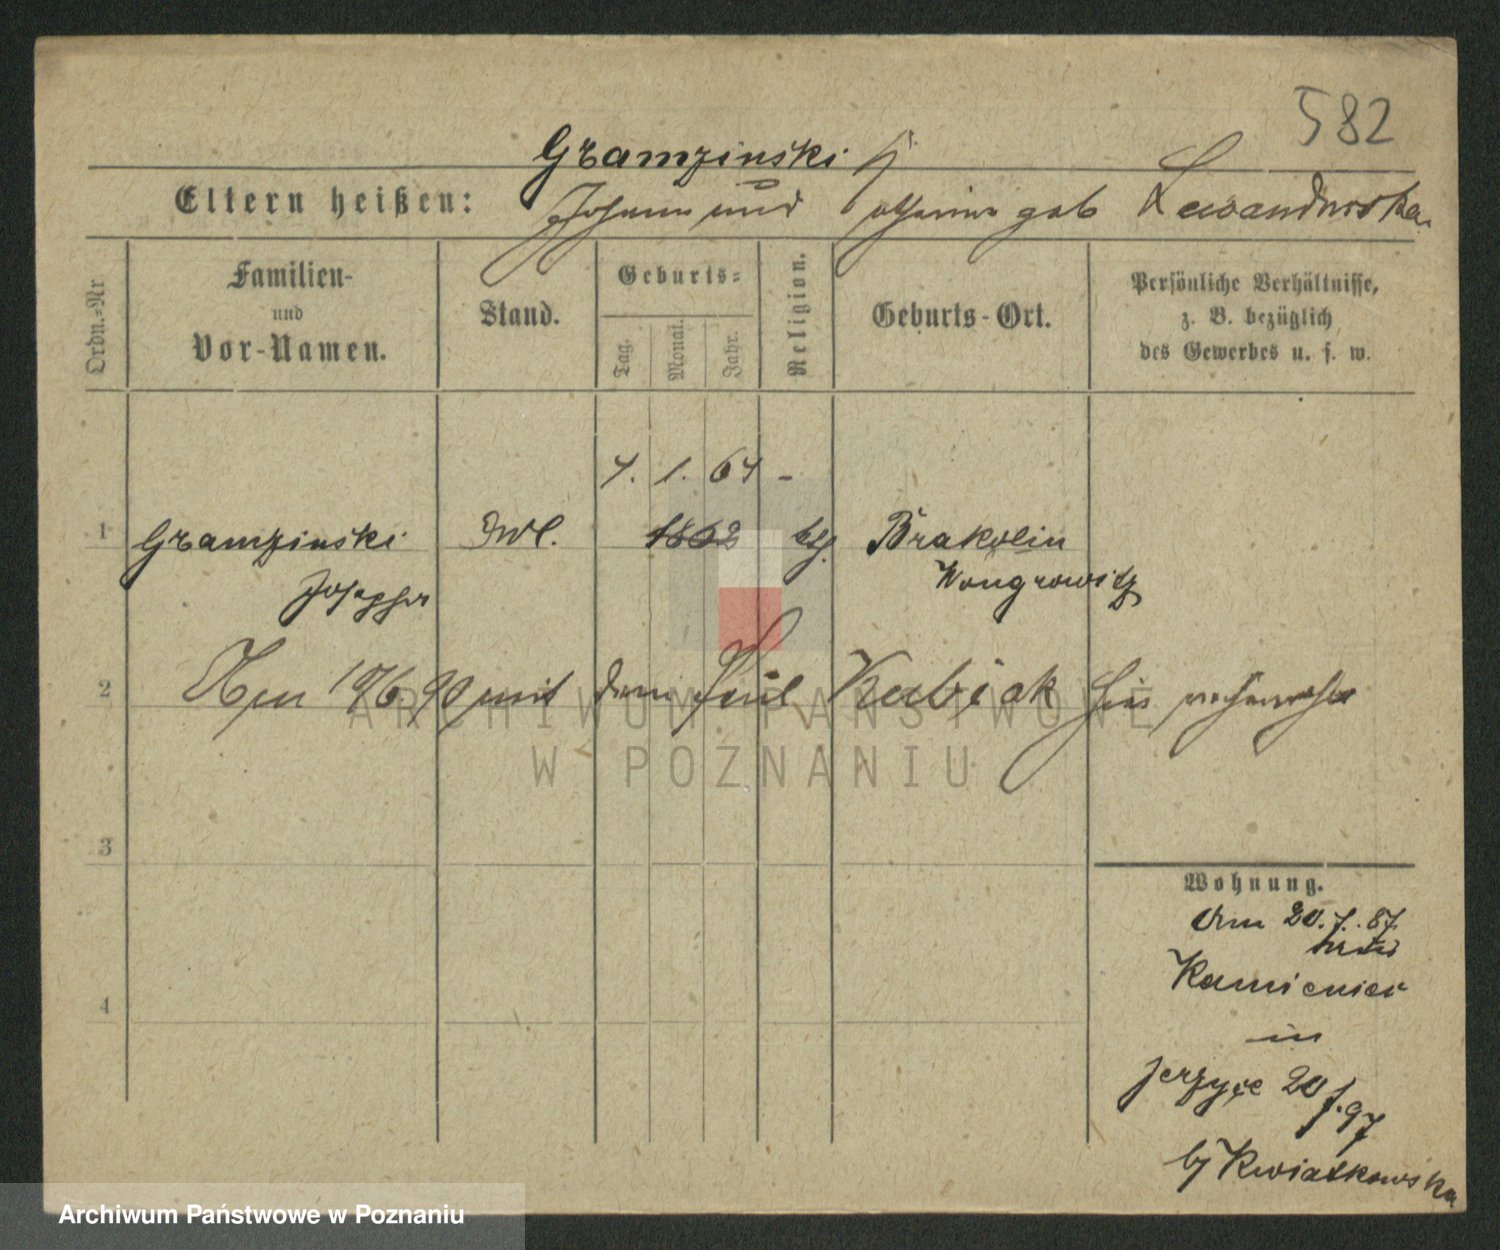 582
Gramzinski
Eltern heißen: Johann und Catharina geb Lewandowska
Ordn.-Nr.
Familien-
und
Vor-Namen.
Stand.
Geburts-
Tag.
Monat.
Jahr.
Religion.
Geburts-Ort.
Persönliche Verhältnisse,
z. B. bezüglich
des Gewerbes u. s. w.
1. 64 -
1 Gramzinski 1862 Brakolin
Josepha Wongrowitz
2 mit dem Kubiak
3
4
Wohnung.
Am 20.7.87.
Kamieniec
in
Jerzyce 20
by Kwiatkowska
ARCHIWUM PAŃSTWOWE
W POZNANIU
Archiwum Państwowe w Poznaniu